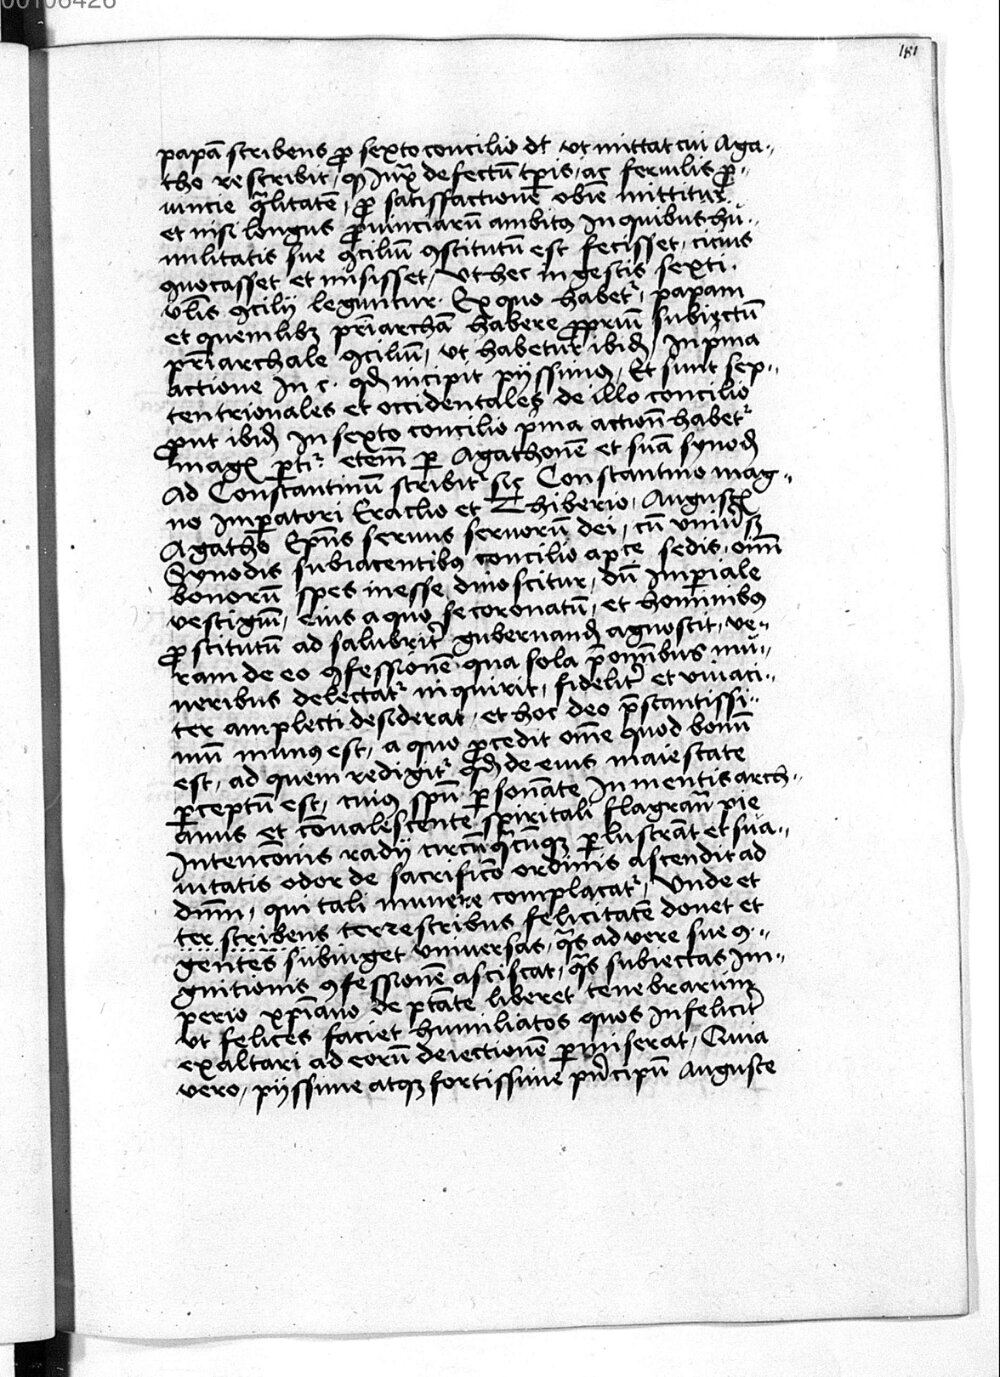 00106426
181
papā scribens ꝓ sexto concilio dt̄ ut mittat cui Aga-
tho rescribit, ꝙ iuxͣ defectū tꝑis, ac seruilis ꝓ-
uincie q̄litatē, ꝓ satisfactionē obiē mittitur
et nisi longus ꝓuinciarū ambitꝰ in quibus hu-
militatis sue ꝯciliū ꝯstitutū est fecisset, cicius
ꝯuocasset et misisset, Ut hec in gestis sexti
vl̄is ꝯcilij leguntur. Ex quo habetʳ, papam
et quemlibꝫ pr̄iarchā habere ꝓpriū subiectū
pr̄iarchale ꝯciliū, ut habetur ibid̄, In pͥma
actione In c. qd̄ incipit pijssimos, Et sunt sep-
tentrionales et occidentales de illo concilio
ꝓut ibid̄ In sexto concilio pͥma actiōn habetʳ
etem̄ ꝑ Agathonē et suā synod̄
Ad Constantinū scribitʳ sic Constantino mag-
no Imꝑatori Eraclio et Thiberio, Augustis
Agatho Ep̄us seruus seruorū dei, cū uniuersꝫ
Synodis subiacentibꝰ concilio aplce sedis, om̄
bonorū spes inesse dinoscitur, dū Imꝑiale
vestigiū, eius a quo se coronatū, et hominibꝰ
ꝓstitutū ad salubrit̄ gubernand̄ agnoscit, ve-
ram de eo ꝯfessionē qua sola p̄ om̄ibus mu-
neribus delectatʳ inquirit, fidelit̄ et viuaci-
ter amplecti desiderat, et hoc deo p̄stantissi-
mū munꝰ est, a quo ꝓcedit om̄e quod bonū
est, ad quem redigitʳ qd̄ de eius maiestate
ꝑceptū est, cuiꝰ spū ꝑsonante In mentis arch-
anis et cōualescente spiritali flagrātī pie
Intencōnis radij circūq̄cūqꝫ ꝑlustrāt et sua-
uitatis odor de sacrificō ordinis ascendit ad
dn̄m, qui tali munere complacatʳ, Unde et
ter scribens terrestribus felicitatē donet et
gentes subiuget uniuersas, q̄s ad vere sue ꝯ-
gnitionis ꝯfessionē asciscat, q̄s subiectas Im-
perio xp̄iano de ptāte liberet tenebrarum
Ut felices faciet humiliatos quos Infelicit̄
exaltari ad eorū deiectionē ꝑmiserat, Quia
vero, pijssime atqꝫ fortissime pͥncipū Auguste